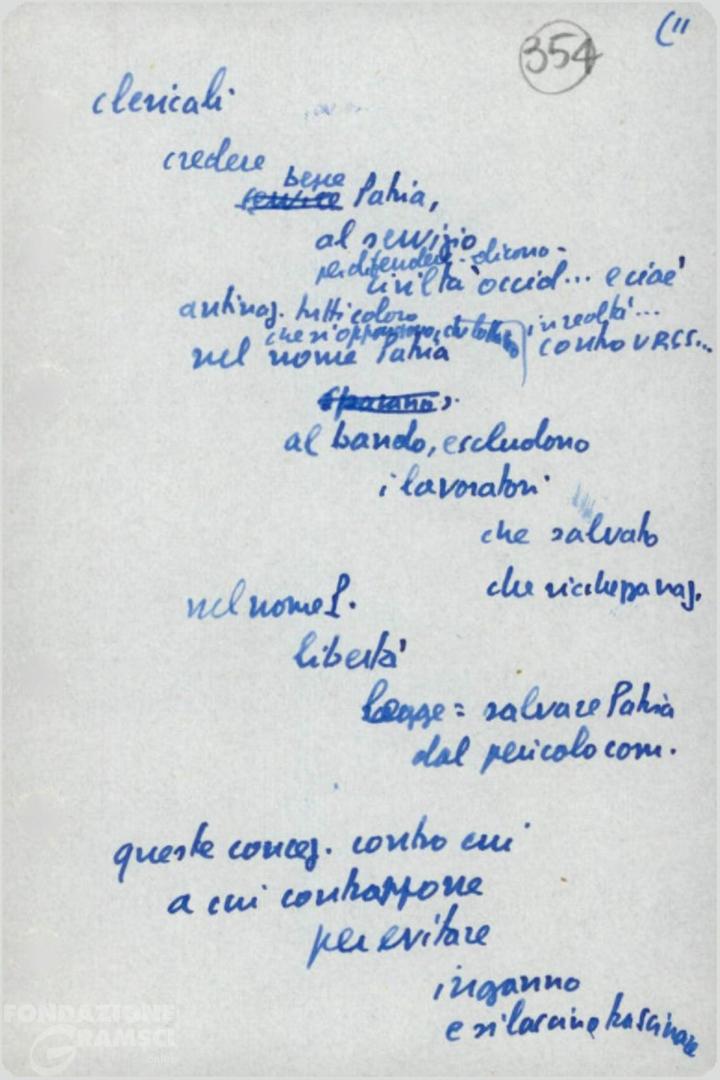 354
clericali
credere bene
Patria,
al servizio
per difendere - dicono -
civiltà occid... e cioè
antinaz. tutti coloro
che si oppongono, che lottano
in realtà...
contro URSS...
nel nome Patria
al bando, escludono
i lavoratori
che salvato
che ricchezza naz.
nel nome P.
libertà
Legge = salvare Patria
dal pericolo com.
queste concez. contro cui
a cui contrappone
per evitare
inganno
e si lascino trascinare
FONDAZIONE
GRAMSCI